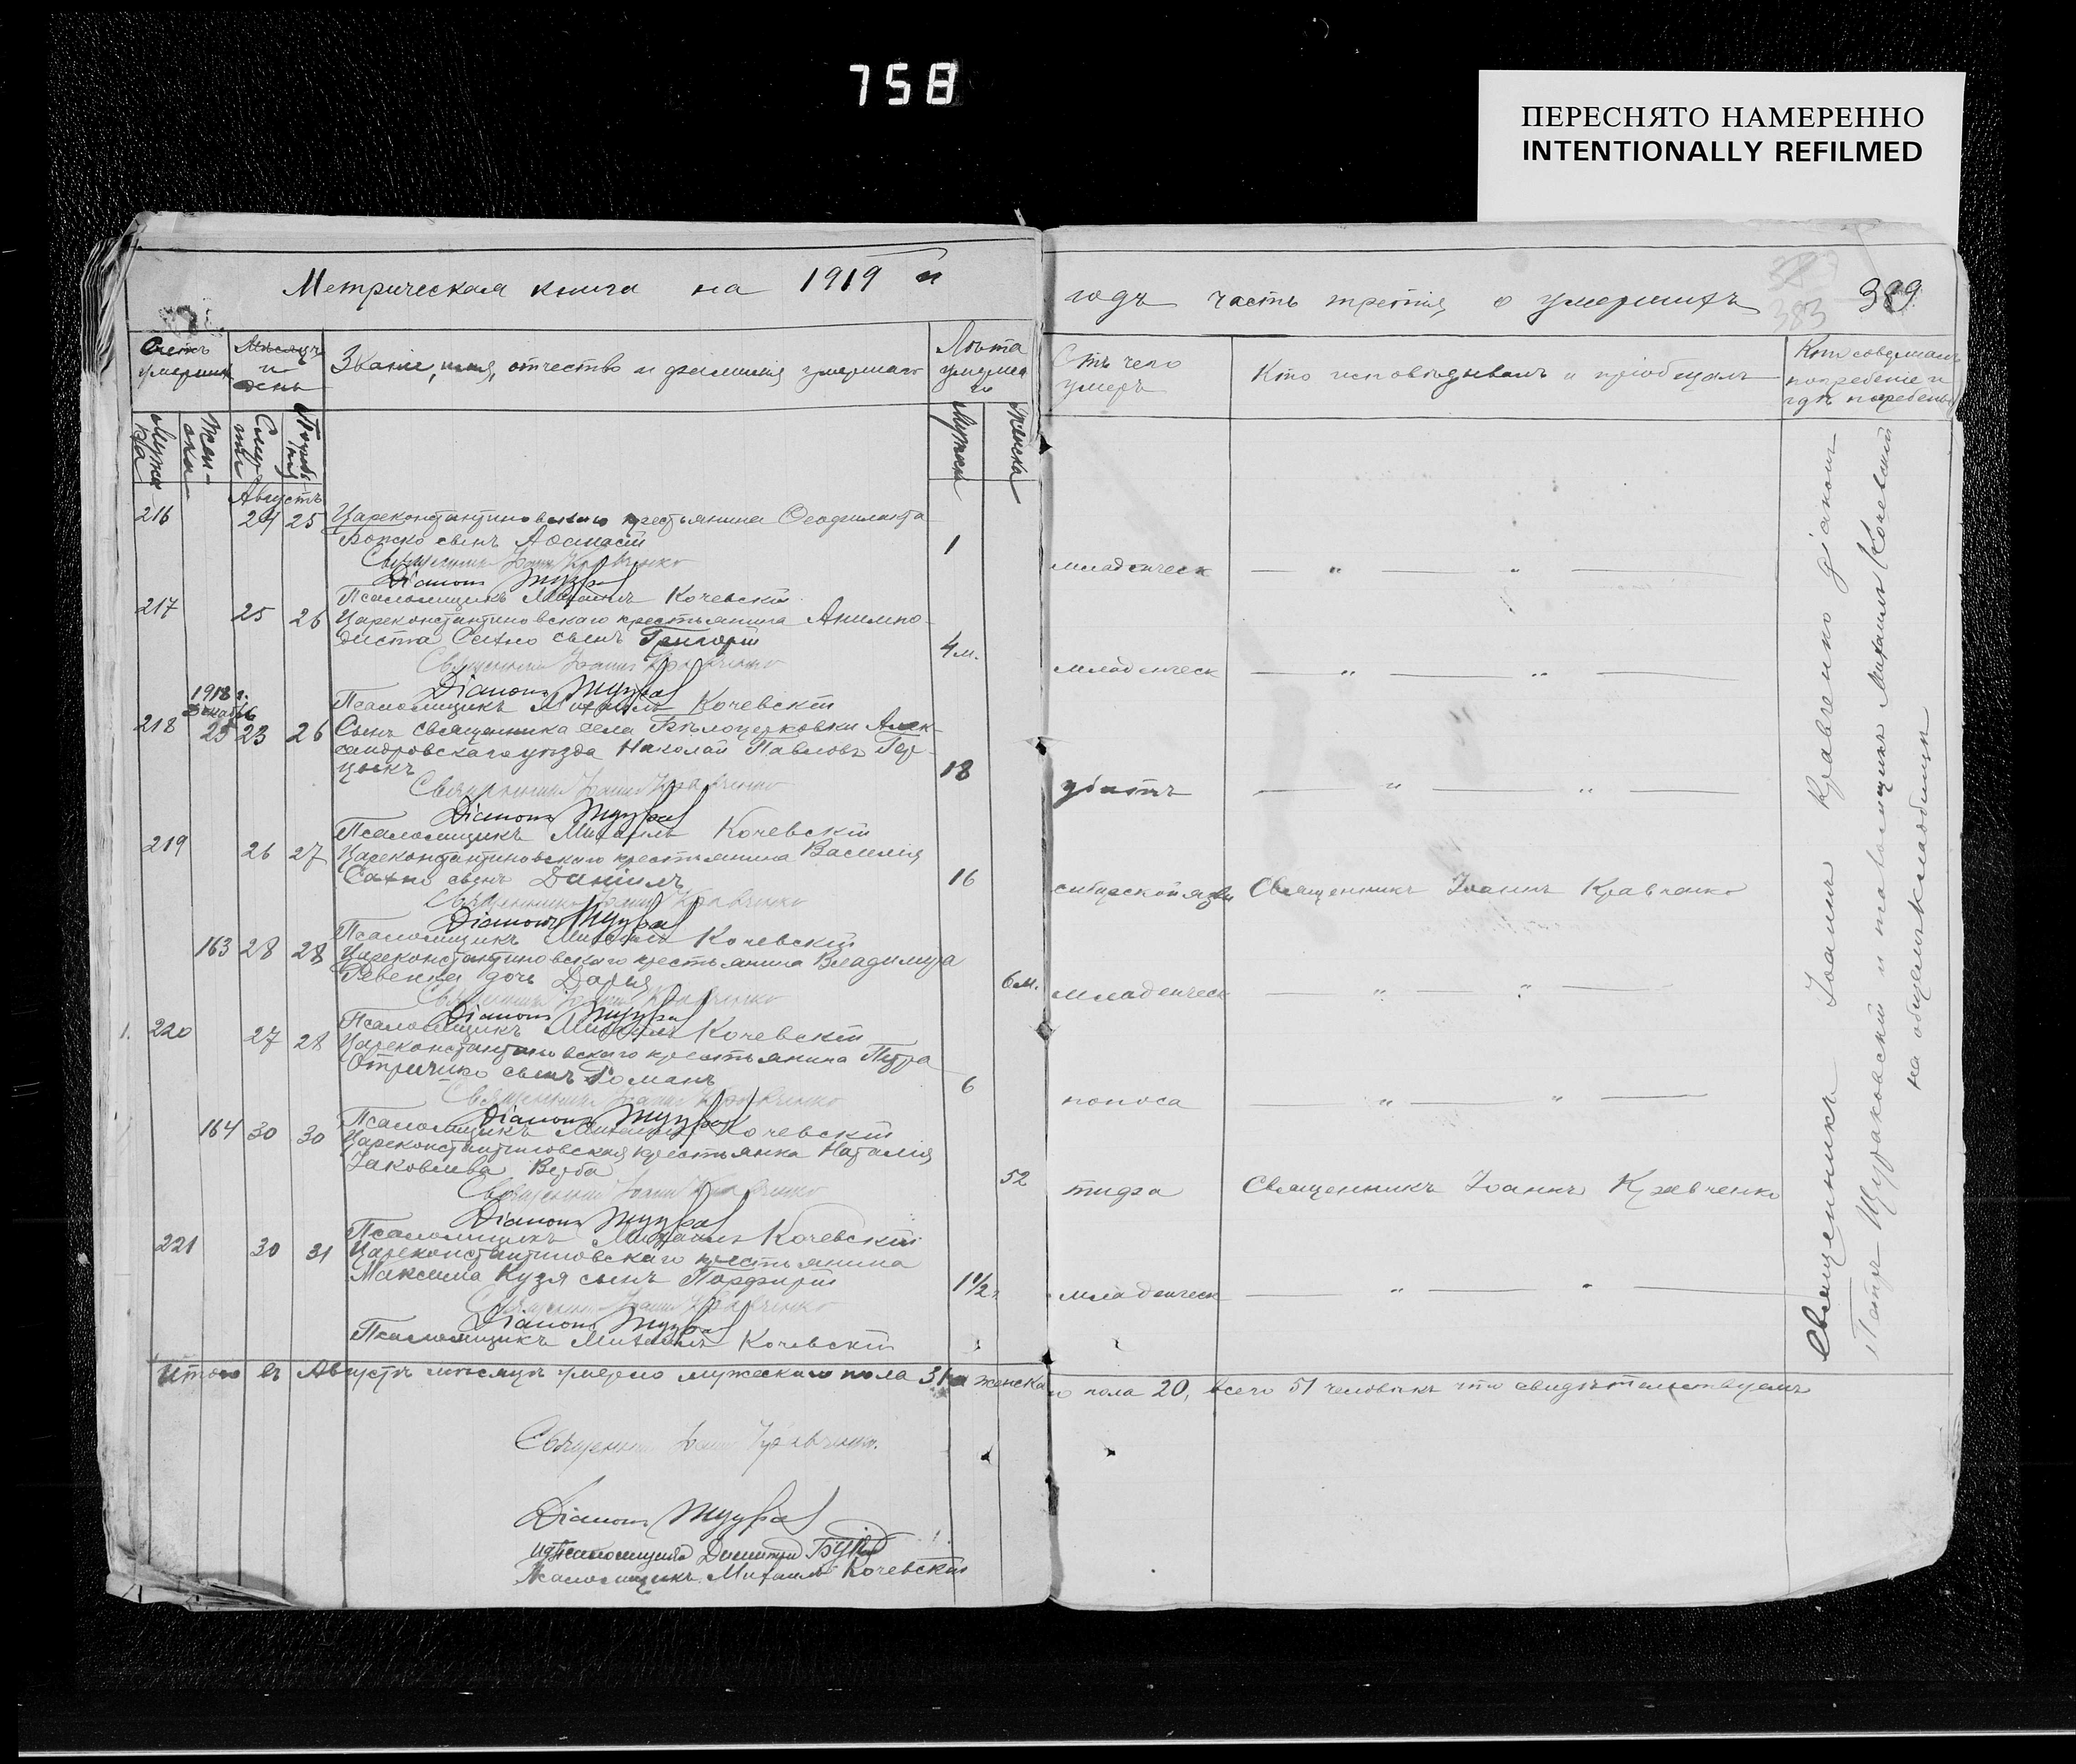 758
ПЕРЕСНЯТО НАМЕРЕННО
INTENTIONALLY REFILMED
Метрическая книга на 1919 й
годъ часть третія, о умершихъ 383 389
Счетъ умершихъ
Мѣсяцъ и день
Званіе, имя, отчество и фамилія умершаго
Лѣта умерша го
Отъ чего умеръ
Кто исповѣдывалъ и пріобщалъ
Кто совершалъ погребеніе и гдѣ погребены
Мужска
Жен-ска
Смер ти
Мужска
Женска
Августъ
216 24 25 Цареконстантиновскаго крестьянина Ѳеофилакта
Божко сынъ Аѳанасій 1
Священникъ Іоаннъ Кравченко
младенческ " "
Діаконъ
Псаломщикъ Михаилъ Кочевскій
217 25 26 Цареконстантиновскаго крестьянина Анемпо-
диста Сахно сынъ Григорій 4 м.
Священникъ Іоаннъ Кравченко
младенческ " "
Діаконъ
Псаломщикъ Михаилъ Кочевскій
1918 г.
декабрь
218 25 23 26 Сынъ священника села Бѣлоцерковки Алек-
сандровскаго уѣзда Николай Павловъ Гер-
цыкъ 18
убитъ " "
Священникъ Іоаннъ Кравченко
Діаконъ
Псаломщикъ Михаилъ Кочевскій
219 26 27 Цареконстантиновскаго крестьянина Василія
Сахно сынъ Даніилъ 16
сибирской язвы Священникъ Іоаннъ Кравченко
Священникъ Іоаннъ Кравченко
Діаконъ
Псаломщикъ Михаилъ Кочевскій
163 28 28 Цареконстантиновскаго крестьянина Владимира
Ревенка дочь Дарія 6 м.
младенческ " "
Священникъ Іоаннъ Кравченко
Діаконъ
Псаломщикъ Михаилъ Кочевскій
1. 220 27 28 Цареконстантиновскаго крестьянина Петра
сынъ Романъ 6
Священникъ Іоаннъ Кравченко
поноса " "
Діаконъ
Псаломщикъ Михаилъ Кочевскій
164 30 30 Цареконстантиновская крестьянка Наталія
Іаковлева Верба 52
тифа Священникъ Іоаннъ Кравченко
Священникъ Іоаннъ Кравченко
Діаконъ
Псаломщикъ Михаилъ Кочевскій
221 30 31 Цареконстантиновскаго крестьянина
Максима Кузя сынъ Порфирій 1 1/2 г.
младенческ " "
Священникъ Іоаннъ Кравченко
Діаконъ
Псаломщикъ Михаилъ Кочевскій
Священникъ Іоаннъ Кравченко діаконъ
Петръ и псаломщикъ Михаилъ Кочевскій
на общемъ кладбищѣ
Итого въ Августѣ мѣсяцѣ умерло мужескаго пола 31 а женскаго пола 20, всего 51 человѣкъ что свидѣтельствуемъ
Священникъ Іоаннъ Кравченко.
Діаконъ
Псаломщикъ Михаилъ Кочевскій